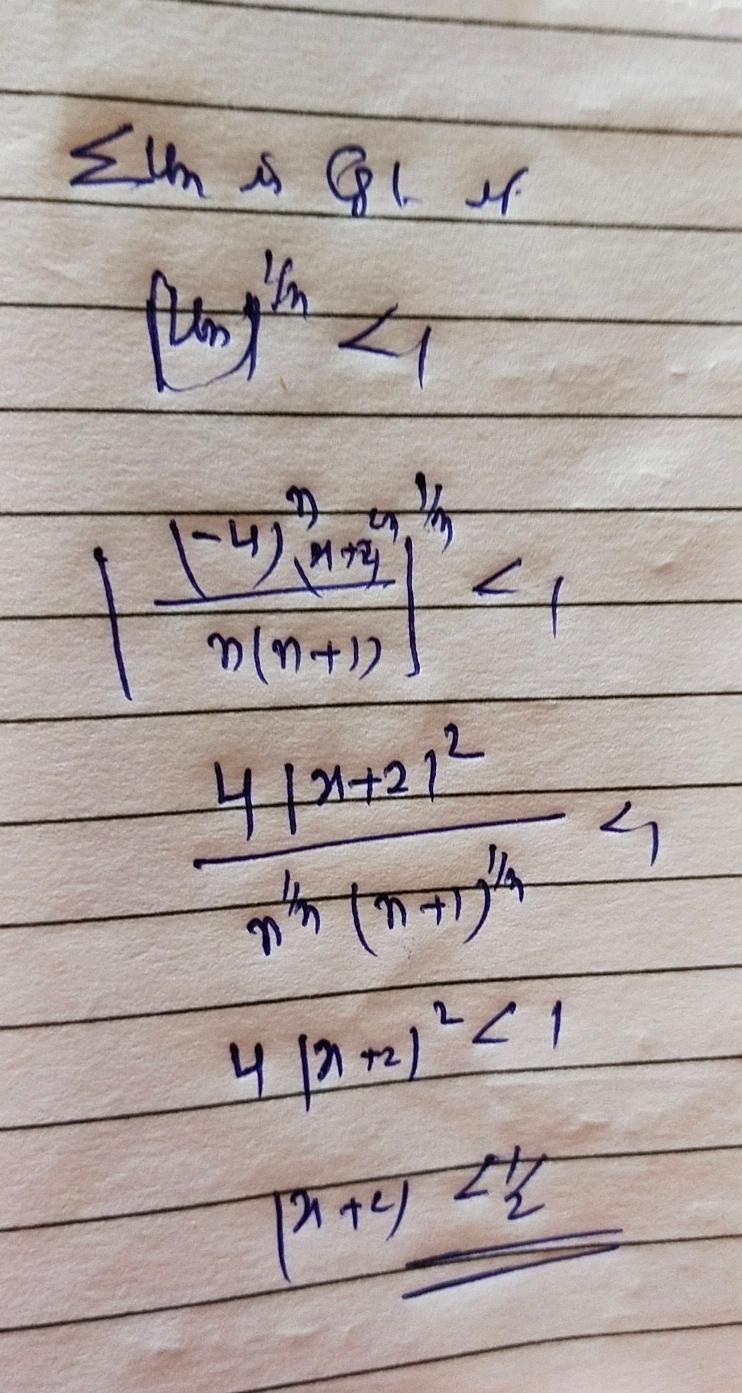 Σun is Cgt. if
|un|^1/n < 1
|(-4)^n (x+2)^2n / n(n+1)|^1/n < 1
4|x+2|^2 / n^1/n (n+1)^1/n < 1
4|x+2|^2 < 1
|x+2| < 1/2